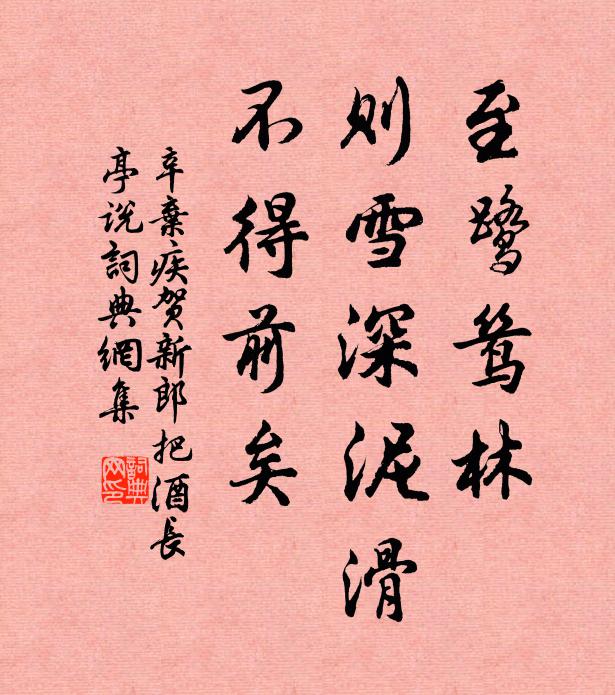 至鹭鸶林
则雪深泥滑
不得前矣
辛棄疾贺新郎把酒長
亭说詞典網集
詞典
网印